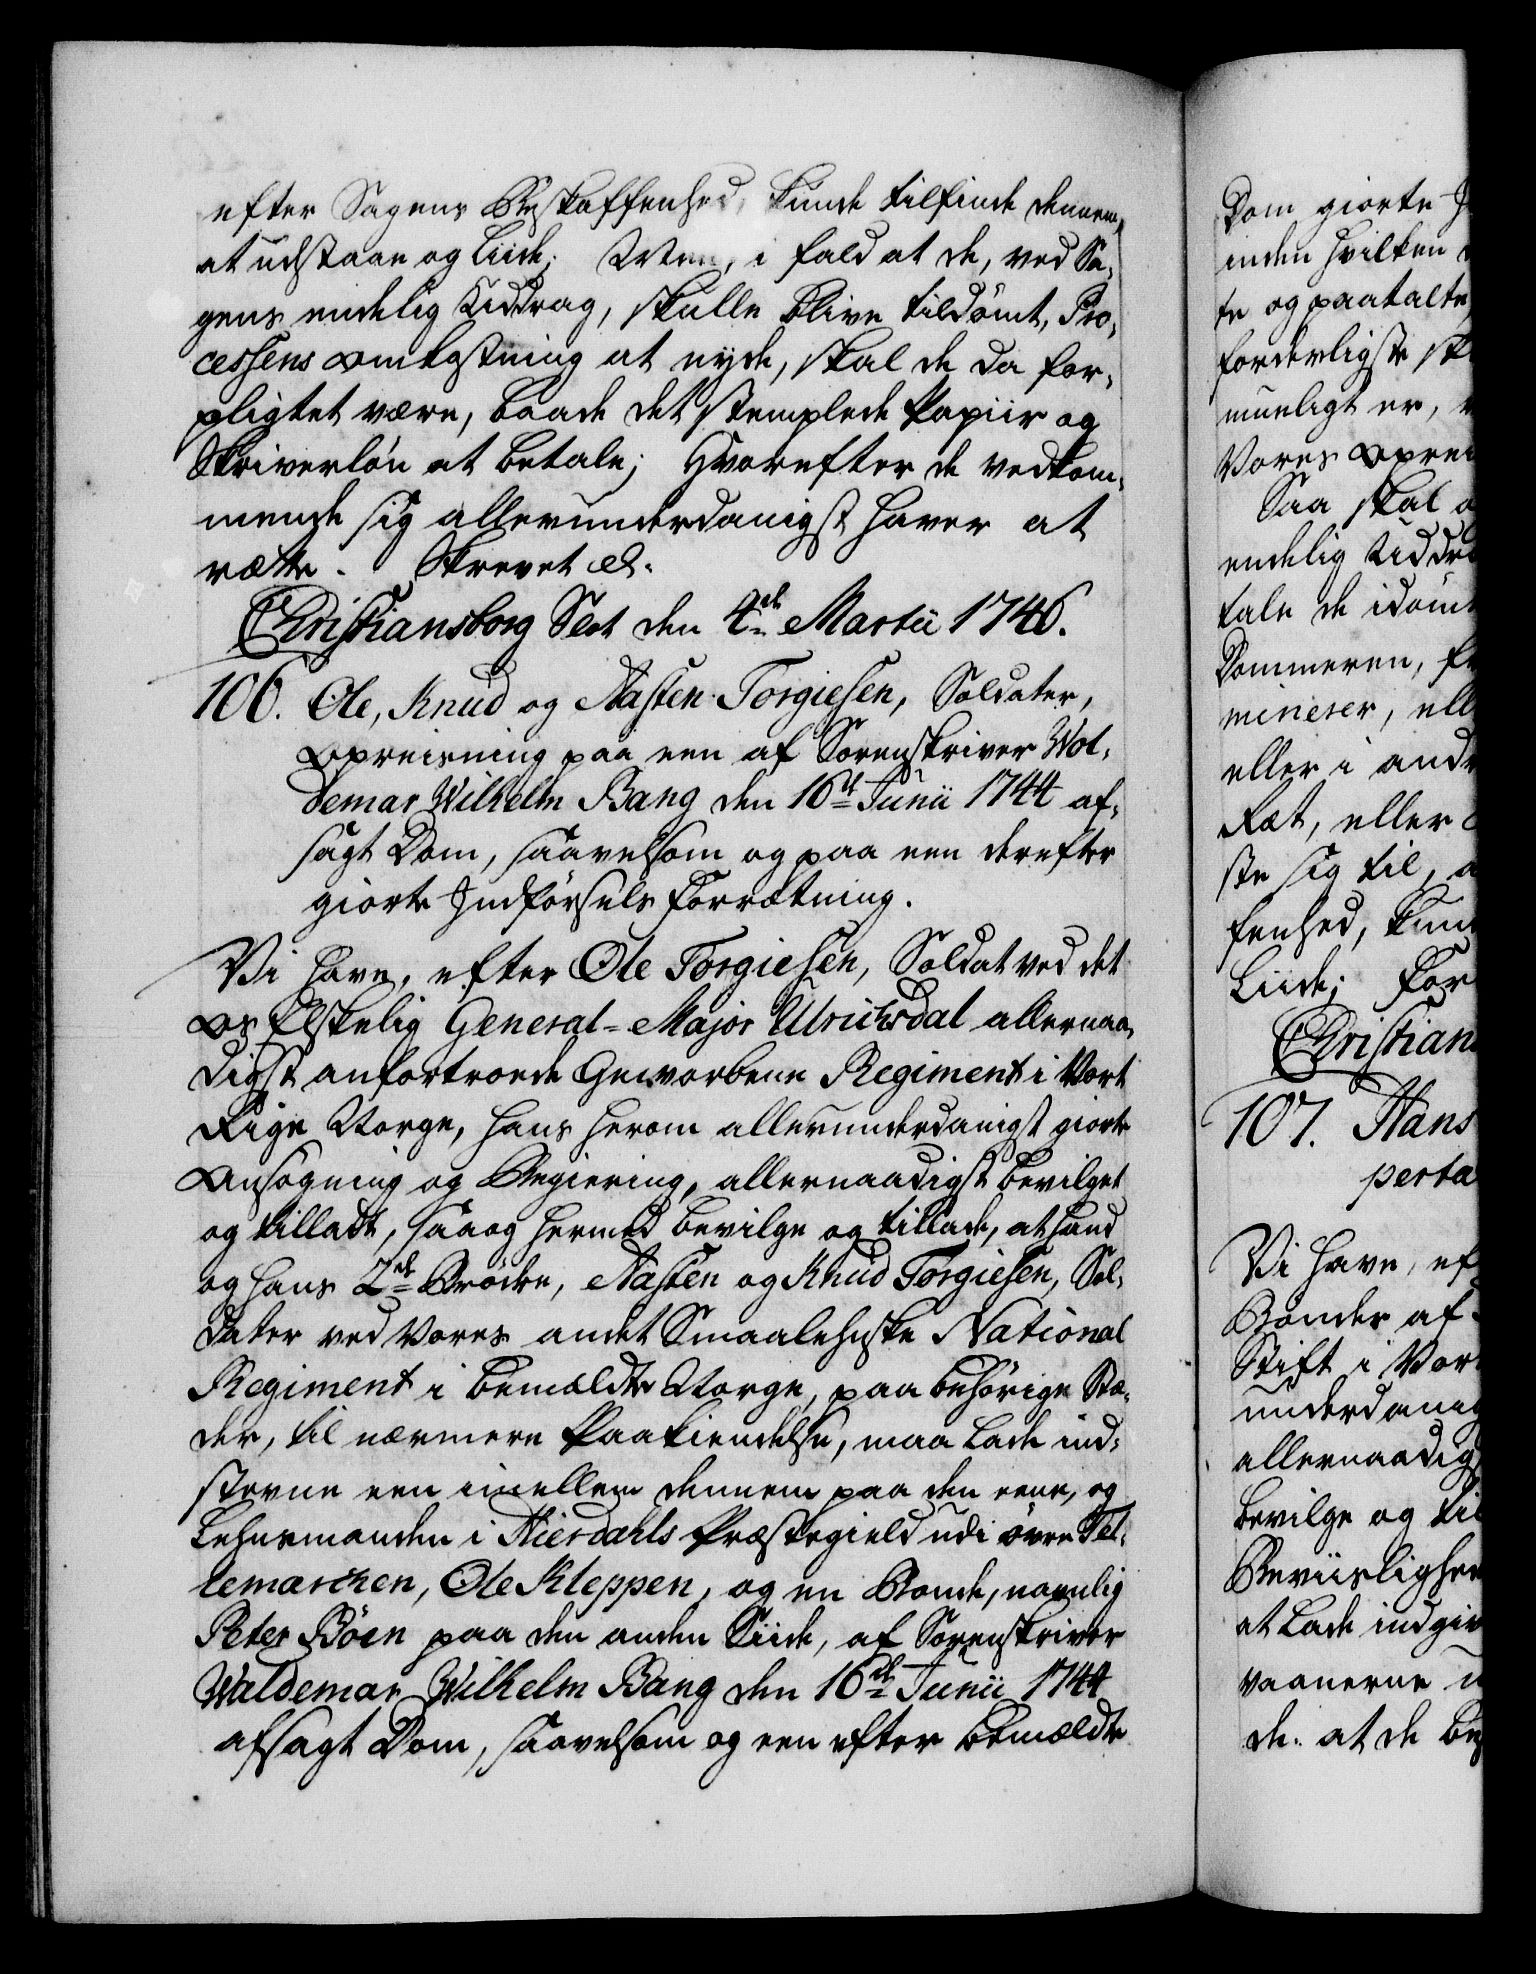 efter Sagens Beskaffenhed, kunde tilfinde dennem,
at udstaae og liide; Men, i fald at de, ved Sa-
gens endelig Uddrag, skulle blive tildömt, Pro-
cessens Omkostning at nyde, skal de da for-
pligtet være, baade det stemplede Papiir og
Skriverlön at betale; Hvorefter de vedkom-
mende sig allerunderdanigst haver at
rætte. Skrevet &.
Christiansborg Slot den 4de Martii 1746.
106. Ole, Knud og Aasten Torgiesen, Soldater,
Opreisning paa een af Sorenskriver Wol-
demar Wilhelm Bang den 16de Junii 1744 af-
sagt Dom, saavelsom og paa een derefter
giorte Indförsels Forrætning.
Vi have, efter Ole Torgiesen, Soldat ved det
Os Elskelig General-Major Ulrichsdal allernaa-
digst anfortroede Gevorbene Regiment i Vort
Rige Norge, hans herom allerunderdanigst giorte
Ansögning og Begiering, allernaadigst bevilget
og tilladt, saa og hermed bevilge og tillade, at hand
og hans 2de Brödre, Aasten og Knud Torgiesen, Sol-
dater ved Vores andet Smaalehnske National
Regiment i bemældte Norge, paa behörige Stæ-
der, til nærmere Paakiendelse, maa lade ind-
stevne een imellem dennem paa den eene, og
Lehnsmanden i Hierdahls Præstegield udi övre Tel-
lemarchen, Ole Kleppen, og en Bonde, navnlig
Peter Böen paa den anden Siide, af Sorenskriver
Waldemar Wilhelm Bang den 16de Junii 1744
afsagt Dom, saavelsom og een efter bemældte
Dom giorte
inden hvilken
te og paatalte
forderligste
mueligt er,
Vores
Saa skal
endelig
tale de
Dommeren,
eller i
Ræt, eller
ste sig til,
fenhed,
liide; For
107. Hans
Vi have,
Bönder af
Stift i
bevilge og
at lade
vaanerne
de. at de